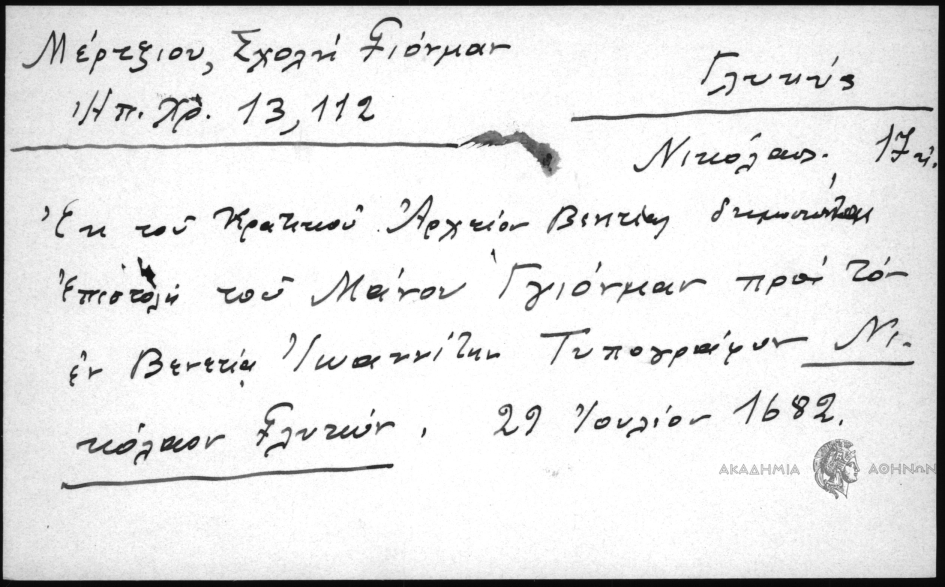 Μέρτζιου, Σχολή Γιόνμαν
Ἠπ. Χρ. 13, 112
Γλυκύς
Νικόλαος. 17 αἰ.
Ἐκ τοῦ Κρατικοῦ Ἀρχείου Βενετίας δημοσιεύεται
Ἐπιστολή τοῦ Μάνου Γγιόνμαν πρός τόν
ἐν Βενετίᾳ Ἰωαννίτην Τυπογράφον Νι-
κόλαον Γλυκύν. 29 Ἰουλίου 1682.
ΑΚΑΔΗΜΙΑ ΑΘΗΝΩΝ